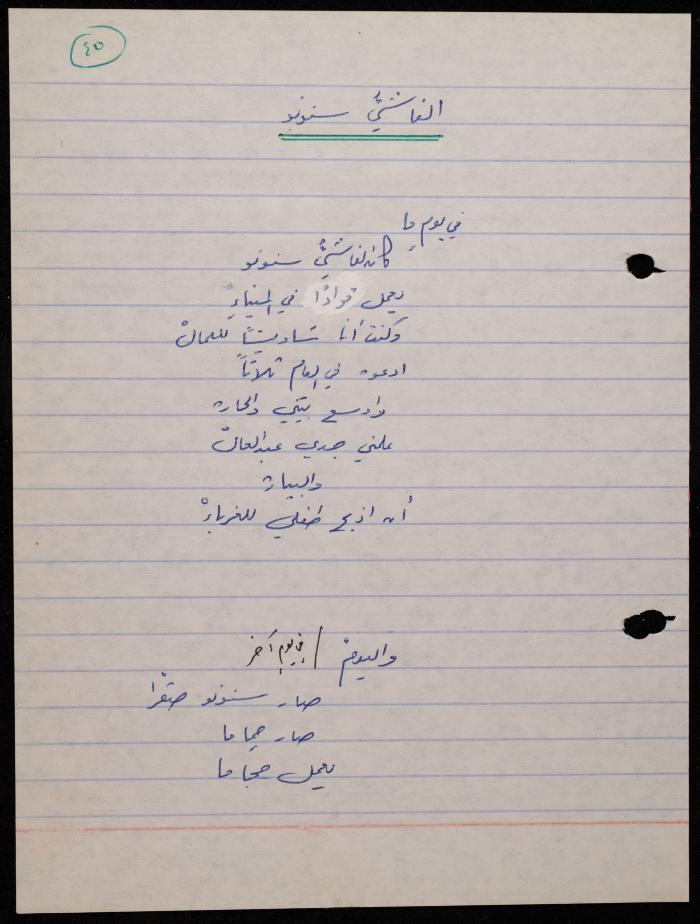 ٤٥
الفاشيُّ سنونو
في يومٍ ما
كان الفاشيُّ سنونو
يعمل قوادًا في الميناءِ
وكنت أنا شاويشاً للعمالْ
ادعوه في العام ثلاثاً
وادسع بيتي والحارة
علمني جدي عبدالعالْ
والبيارة
أن اذبح طفلي للغرباءْ
واليومْ / في يومٍ آخر
صار سنونو صقْرا
صار حماما
يعمل حجاما